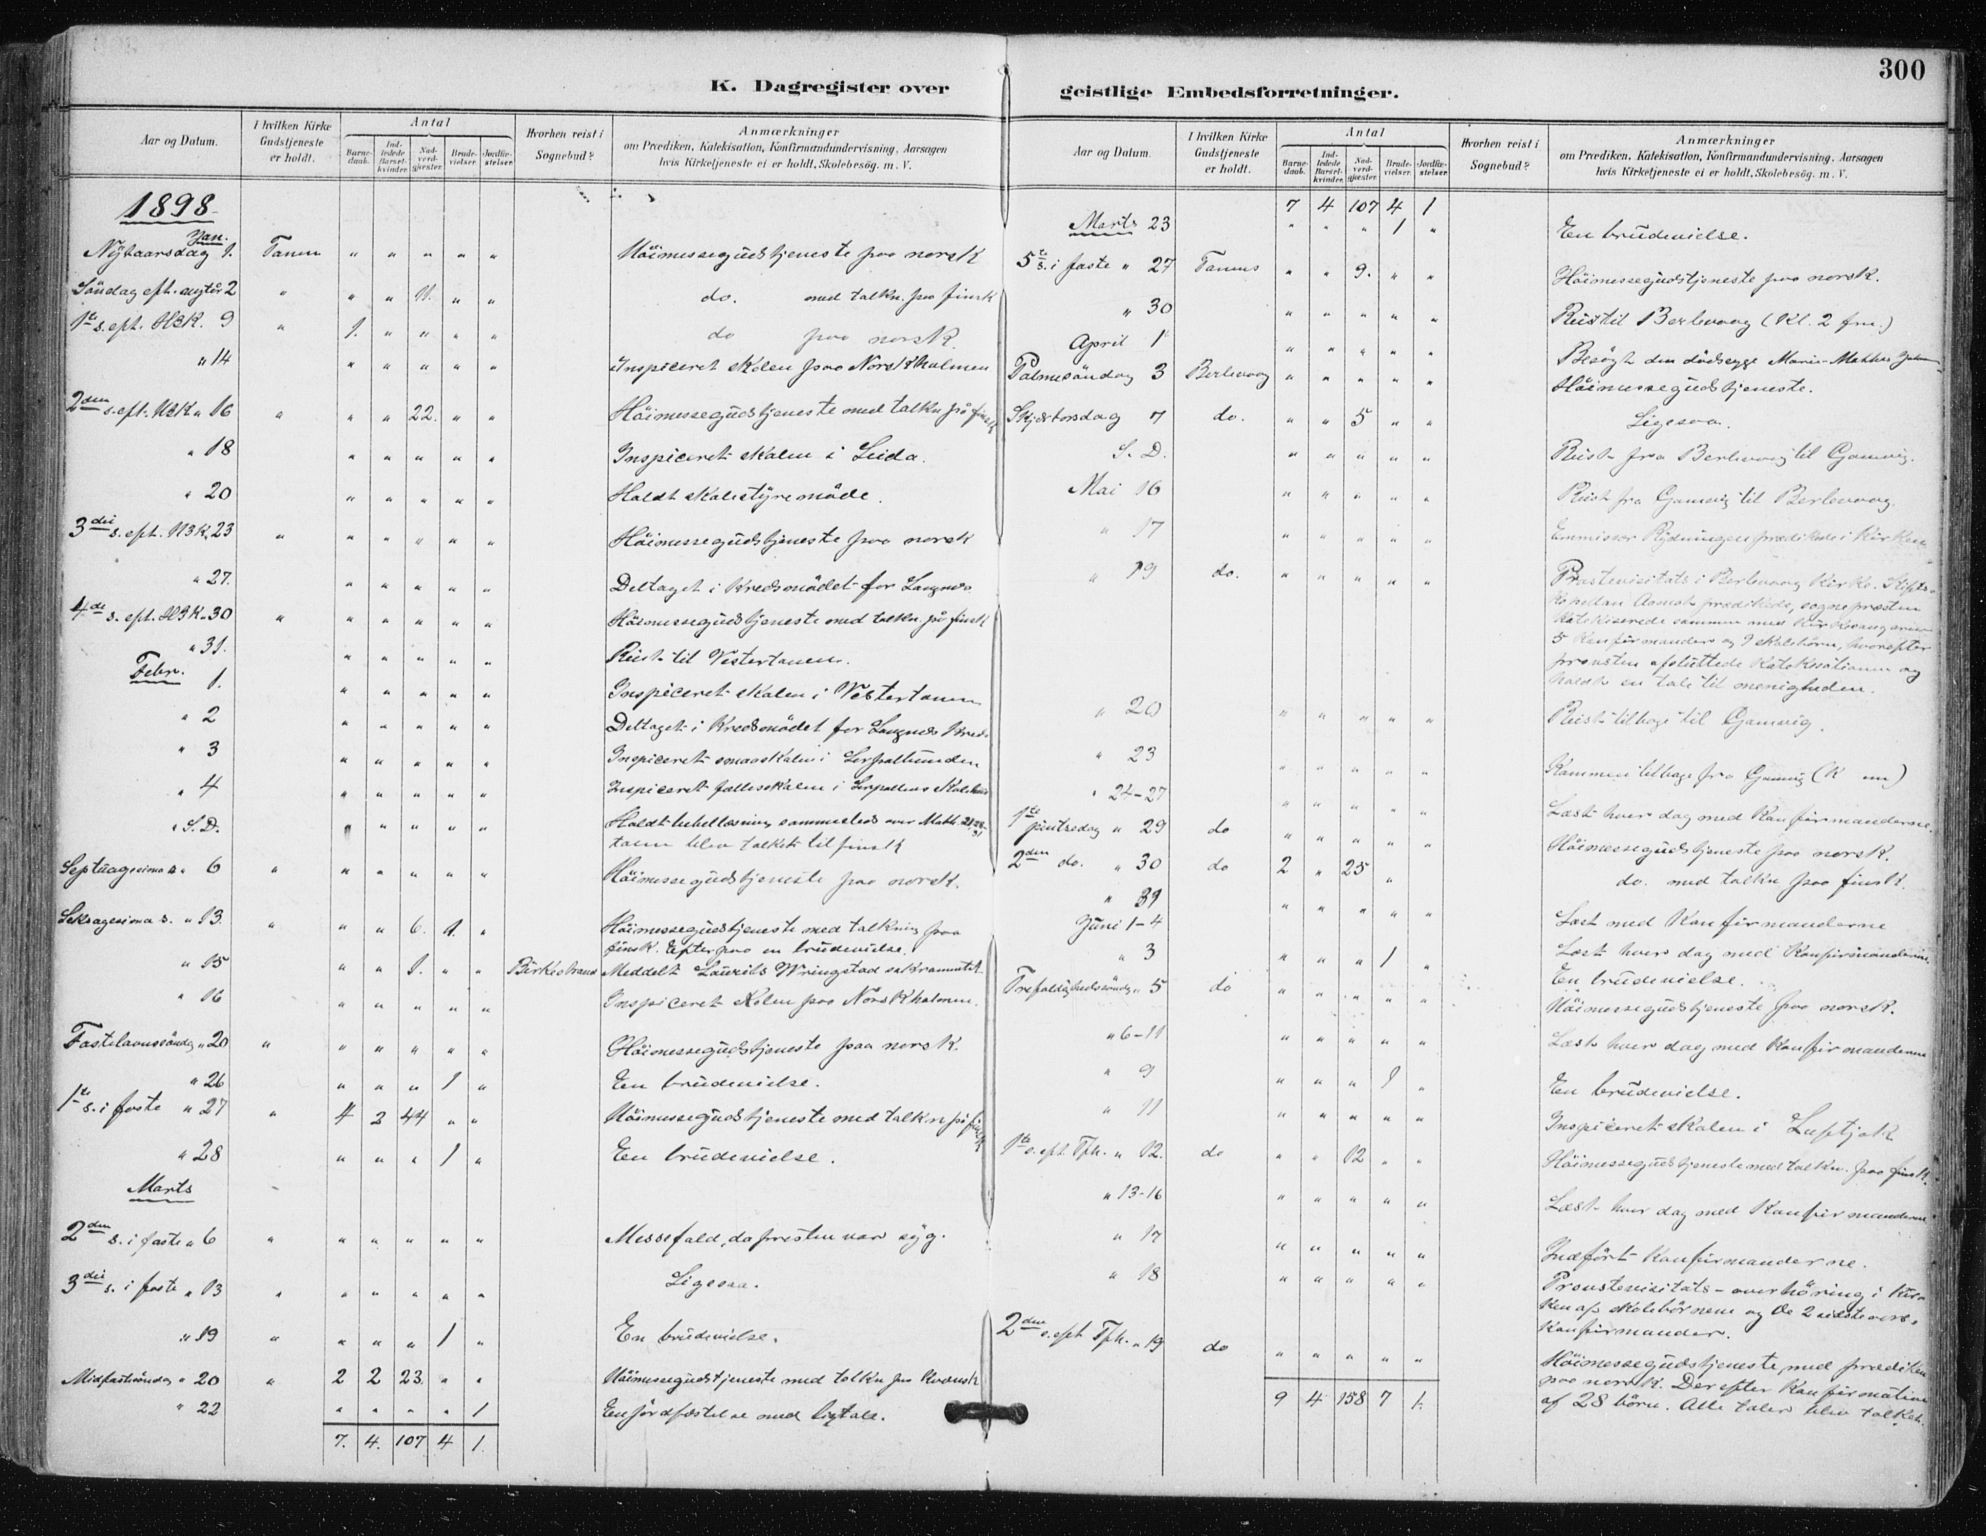 300
K. Dagregister over geistlige Embedsforretninger.
Aar og Datum.
I hvilken Kirke Gudstjeneste er holdt.
Antal
Barnedaab.
Indledede Barselkvinder.
Nadverdgjester.
Brudevielser.
Jordfæstelser.
Hvorhen reist i Sognebud?
Anmærkninger
om Prædiken, Katekisation, Konfirmandundervisning, Aarsagen
hvis Kirketjeneste ei er holdt, Skolebesøg. m. V.
1898.
Jan.
Nytaarsdag 1. Tanen " " " " " Høimessegudstjeneste paa norsk
Søndag eft. nytår 2 " " " 11. " " do. med tolkn. paa finsk
1te s. eft. H3K. 9 " 1. " " " " do paa norsk.
" 14 " " " " " Inspiceret skolen paa Norskholmen
2den s. eft. H3K " 16 " " " 22. " " Høimessegudstjeneste med tolkn på finsk
" 18 " " " " " Inspiceret skolen i Seida.
" 20 " " " " " Holdt skolestyremøde.
3die s. eft. H3K. 23 " " " " " " Høimessegudstjeneste paa norsk
" 27. " " " " " Deltaget i Kredsmødet for Langnes
4de s. eft. H3K " 30 " " " " " " Høimessegudstjeneste med tolkn. på finsk
" 31. " " " " " Reist til Vestertanen.
Febr. 1. " " " " " Inspiceret skolen i Vestertanen
" 2 " " " " " Deltaget i Kredsmødet for Langnes Kreds
" 3 " " " " " Inspiceret smaaskolen i
" 4 " " " " " Inspiceret
" S. D. " " " " " Holdt bibellæsning sammesteds over Matth.
blev tolket til finsk
Septuagesima s. " 6 " " " " " " Høimessegudstjeneste paa norsk.
Seksagesima s. " 13. " " " 6. 1. " Høimessegudstjeneste med tolkning paa
finsk. Efterpaa en brudevielse.
" 15 " " 1. " " Birkestrand Meddelt Laurits Wringstad sakramentet
" 16 " " " " " Inspiceret skolen paa Norskholmen.
Fastelavnssøndag " 20 " " " " " " Høimessegudstjeneste paa norsk.
" 26 " " " 1 " En brudevielse.
1te s. i faste " 27 " 4 2 44 " " Høimessegudstjeneste med tolkn på finsk
" 28 " " " 1 " En brudevielse.
Marts
2den s. i faste " 6 " " " " " " Messefald, da presten var syg.
3die s. i faste " 13 " " " " " " Ligesaa.
" 19 " " " " 1 " En brudevielse.
Midfastesøndag " 20 " 2 2 23. " " Høimessegudstjeneste med tolkn paa Kvænsk
" 22 " " " " 1 En jordfæstelse med ligtale.
7. 4. 107 4 1.
Aar og Datum.
I hvilken Kirke Gudstjeneste er holdt.
Antal
Barnedaab.
Indledede Barselkvinder.
Nadverdgjester.
Brudevielser.
Jordfæstelser.
Hvorhen reist i Sognebud?
Anmærkninger
om Prædiken, Katekisation, Konfirmandundervisning, Aarsagen
hvis Kirketjeneste ei er holdt, Skolebesøg. m. V.
7 4 107 4 1
Marts 23 " " " 1 " En brudevielse.
5te s. i faste " 27 Tanens " " 9. " " Høimessegudstjeneste paa norsk.
" 30 " " " " " Reist til Berlevaag (Kl. 2 fm.)
April 1 " " " " " Besøgt den dødssyge Marie
Palmesøndag 3 Berlevaag " " " " " Høimessegudstjeneste.
Skjærtorsdag 7 do. " " 5 " " Ligesaa.
S. D. " " " " " Reist fra Berlevaag til Gamvig.
Mai 16 " " " " " Reist fra Gamvig til Berlevaag.
" 17 " " " " " Emmissær Rydningen prædikede i Kirken.
" 19 do. " " " " " Prostevisitats i Berlevaag Kirke. Stifts-
kapellan Aanvik prædikede, sognepræsten
katekiserede sammen med Kirkesangeren
5 konfirmander og 9 skolebørn, hvorefter
prousten afsluttede katekisationen og
holdt en tale til menigheden.
" 20 " " " " " Reist tilbage til Gamvig.
" 23 " " " " " Kommen tilbage fra Gamvig
" 24-27 " " " " " Læst hver dag med Konfirmanderne.
1te pintsedag " 29 do " " " " " Høimessegudstjeneste paa norsk.
2den do. " 30 do 2 " 25 " do. med tolkn paa finsk.
" 31 " " " " " Læst med Konfirmanderne
Juni 1-4 Læst hver dag med Konfirmanderne.
" 3 " " " 1 " En brudevielse.
Trefoldighedssøndag " 5 do " " " " " Høimessegudstjeneste paa norsk.
" 6-11 " " " " " Læst hver dag med Konfirmanderne
" 9 " " " 1 " En brudevielse.
" 11 " " " " " Inspiceret skolen i Luftjok
1te s. eft Tph. " 12. do " " 12 " " Høimessegudstjeneste med tolkn. paa finsk.
" 13-16 " " " " " Læst hver dag med Konfirmanderne
" 17 " " " " " Indført Konfirmanderne.
" 18 " " " " " Proustevisitats-overhøring i Kir-
ken af skolebørnene og de 2 sidste aars
Konfirmander.
2den s. eft Tph. " 19 do " " " " " Høimessegudstjeneste, med prædiken
paa norsk. Derefter Konfirmation
af 28 børn. Alle taler blev tolket.
9 4 158 7 1.